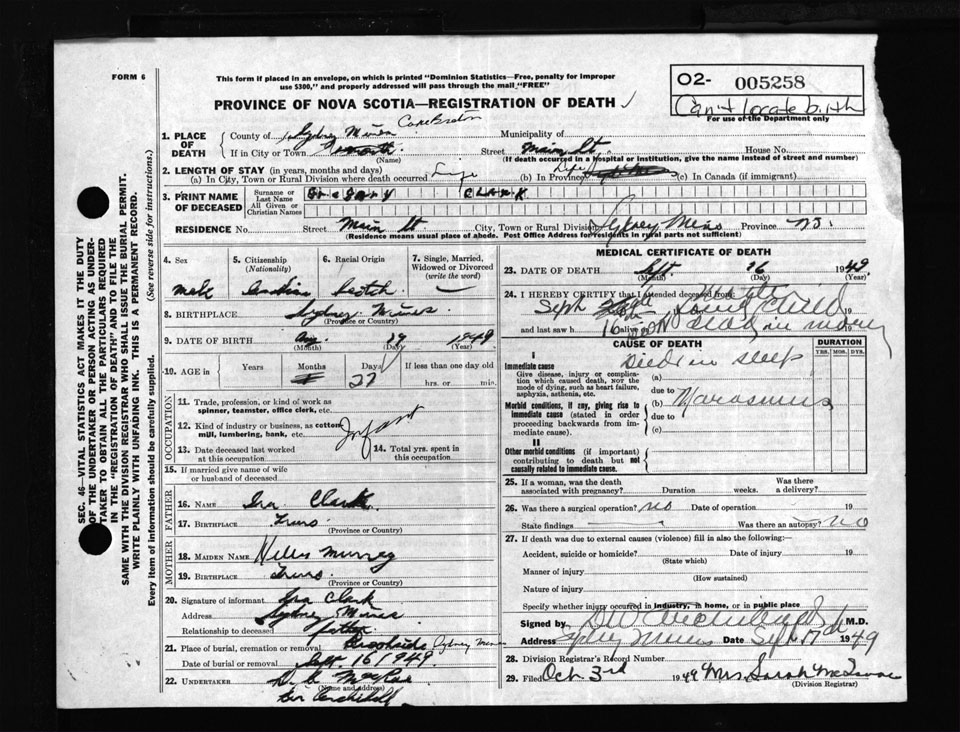 FORM 6
This form if placed in an envelope, on which is printed "Dominion Statistics—Free, penalty for improper
use $300," and properly addressed will pass through the mail "FREE"
O2- 005258
Can't locate birth
For use of the Department only
PROVINCE OF NOVA SCOTIA—REGISTRATION OF DEATH
1. PLACE OF DEATH
County of Sydney Mines Cape Breton Municipality of
If in City or Town Street Main St. House No.
(Name) (If death occurred in a hospital or institution, give the name instead of street and number)
2. LENGTH OF STAY (in years, months and days)
(a) In City, Town or Rural Division where death occurred Life (b) In Province Life (c) In Canada (if immigrant)
3. PRINT NAME OF DECEASED
Surname or Last Name
All Given or Christian Names
GREGARY CLARK
RESIDENCE No. Street Main St. City, Town or Rural Division Sydney Mines Province N.S.
(Residence means usual place of abode. Post Office Address for residents in rural parts not sufficient)
4. Sex
male
5. Citizenship (Nationality)
6. Racial Origin
Scotch
7. Single, Married, Widowed or Divorced (write the word)
8. BIRTHPLACE Sydney Mines
(Province or Country)
9. DATE OF BIRTH Aug 29 1949
(Month) (Day) (Year)
10. AGE in Years Months Days If less than one day old
hrs. or min.
OCCUPATION
11. Trade, profession or kind of work as spinner, teamster, office clerk, etc.
12. Kind of industry or business, as cotton mill, lumbering, bank, etc.
Infant
13. Date deceased last worked at this occupation
14. Total yrs. spent in this occupation
15. If married give name of wife or husband of deceased
FATHER
16. Name Ira Clark
17. BIRTHPLACE Truro
(Province or Country)
MOTHER
18. MAIDEN NAME Murrey
19. BIRTHPLACE Truro
(Province or Country)
20. Signature of informant Ira Clark
Address Sydney Mines
Relationship to deceased father
21. Place of burial, cremation or removal Brookside Sydney Mines
Date of burial or removal Sept. 16 1949
22. UNDERTAKER
(Name and address)
MEDICAL CERTIFICATE OF DEATH
23. DATE OF DEATH Sept. 16 1949
(Month) (Day) (Year)
24. I HEREBY CERTIFY that I attended deceased from:
Seph 19
and last saw h alive on 19
16 dead in
CAUSE OF DEATH
DURATION
YRS. MOS. DYS.
I
Immediate cause
Give disease, injury or complication which caused death, NOT the mode of dying, such as heart failure, asphyxia, asthenia, etc.
(a) Died in sleep
due to
Morbid conditions, if any, giving rise to immediate cause (stated in order proceeding backwards from immediate cause).
(b) Marasmus
due to
(c)
II
Other morbid conditions (if important) contributing to death but not causally related to immediate cause.
25. If a woman, was the death associated with pregnancy? Duration weeks. Was there a delivery?
26. Was there a surgical operation? no Date of operation 19
State findings Was there an autopsy? no
27. If death was due to external causes (violence) fill in also the following:—
Accident, suicide or homicide? Date of injury 19
(State which)
Manner of injury
(How sustained)
Nature of injury
Specify whether injury occurred in industry, in home, or in public place
Signed by M.D.
Address Sydney Mines Date Sept 17th 1949
28. Division Registrar's Record Number
29. Filed Oct 3rd 1949 Mrs. Sarah
(Division Registrar)
SEC. 46—VITAL STATISTICS ACT MAKES IT THE DUTY
OF THE UNDERTAKER OR PERSON ACTING AS UNDER-
TAKER TO OBTAIN ALL THE PARTICULARS REQUIRED
IN THE "REGISTRATION OF DEATH" AND TO FILE THE
SAME WITH THE DIVISION REGISTRAR WHO SHALL ISSUE THE BURIAL PERMIT.
WRITE PLAINLY WITH UNFADING INK. THIS IS A PERMANENT RECORD.
Every item of information should be carefully supplied. (See reverse side for instructions.)